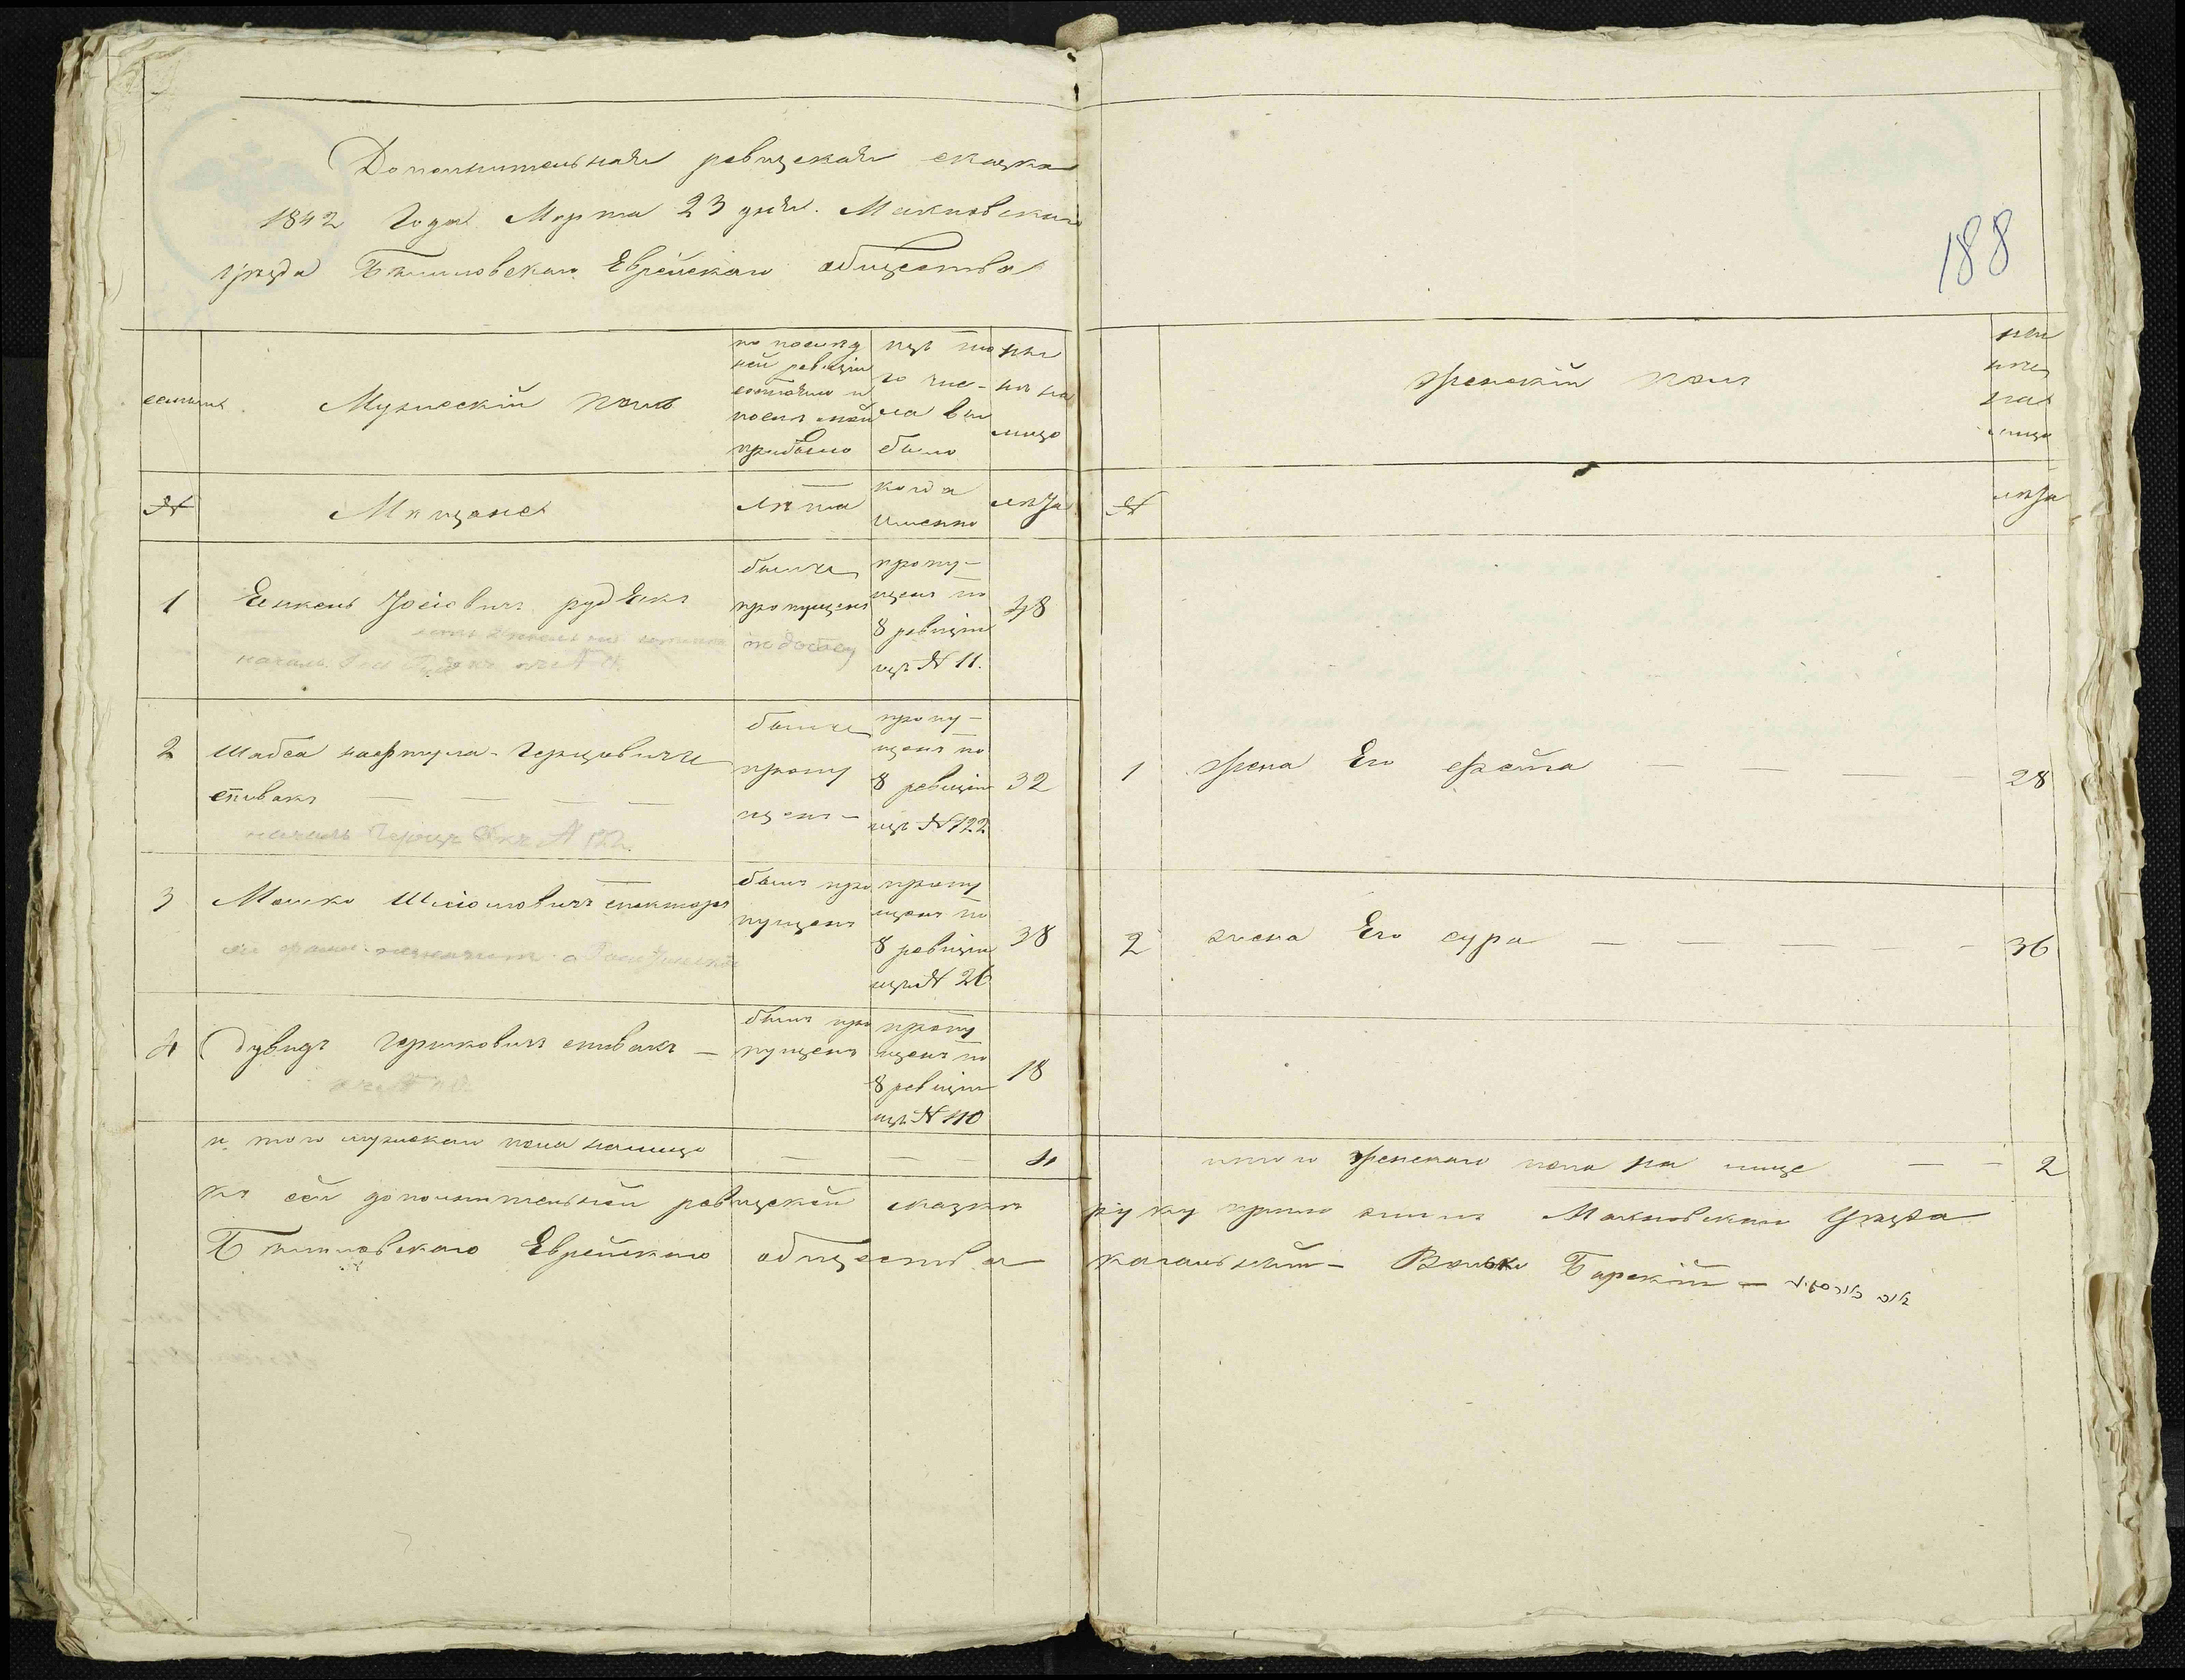 Дополнительная ревизская сказка
1842 Года Марта 23 дня. Махновскаго
уезда Белиловскаго Еврейскаго общества
188
семьи
Мужеский полъ
по послед
ней ревизіи
состояло и
после оной
прибыло
изъ то
го чис-
ла вы
было
ны
не на
лицо
женскій полъ
ны
не
на
лицо
№
Мещане
лета
когда
именно
лета
№
лета
1
Енкель Іосіовичъ рудыкъ
былъ
пропущенъ
пропу-
щенъ по
8 ревизіи
изъ № 11.
48
2
Шабса нафтула-Герцовичъ
спивакъ
былъ
пропу
щенъ -
пропу-
щенъ по
8 ревизіи
изъ № 122
32
1
жена Его
28
№ 122
3
Мошко спекторъ
былъ про
пущенъ
пропу
щенъ по
8 ревизіи
изъ № 26
38
2
жена Его сура
36
4
Дувидъ Гершковичъ спивакъ —
былъ про
пущенъ
пропу
щенъ по
8 ревизіи
изъ № 110
18
итого мужескаго пола налицо
4
итого женскаго пола на лице
2
къ сей дополнительной ревизской сказки руку приложилъ Махновскаго Уезда
Белиловскаго Еврейскаго общества кагальный - Волько Барскій —